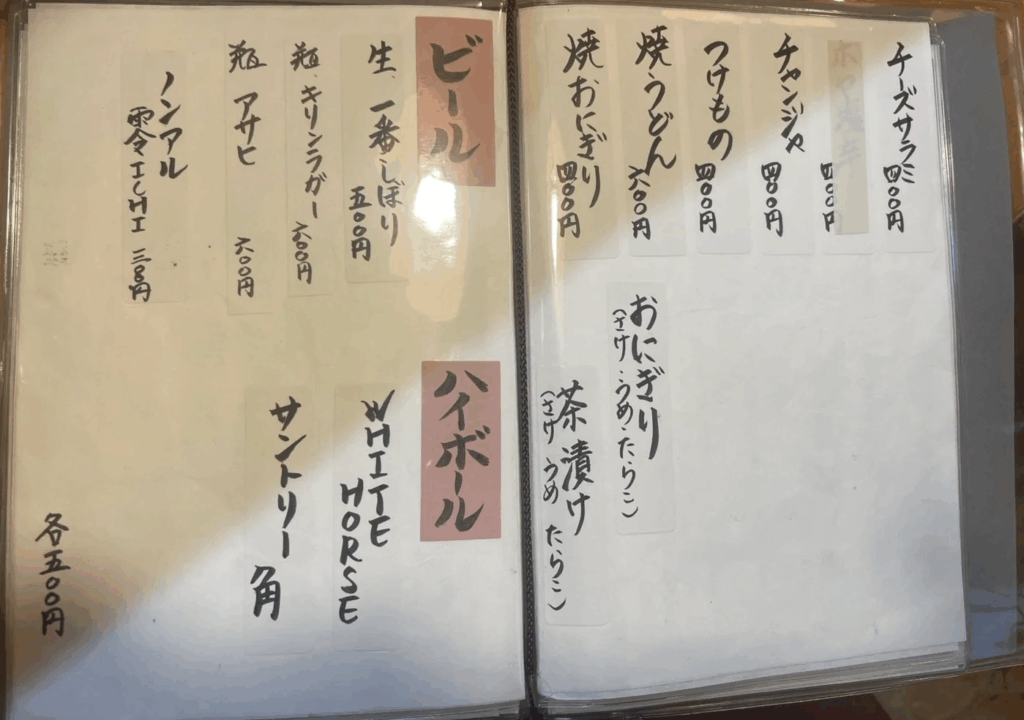 チーズサラミ 四〇〇円
チャンジャ 四〇〇円
つけもの 四〇〇円
焼うどん 六〇〇円
焼おにぎり 四〇〇円
おにぎり
(さけ・うめ・たらこ)
茶漬け
(さけ うめ たらこ)
ビール
生、一番しぼり 五〇〇円
瓶、キリンラガー 六〇〇円
瓶 アサヒ 六〇〇円
ノンアル
零ICHI 三〇〇円
ハイボール
WHITE
HORSE
サントリー
角
各五〇〇円